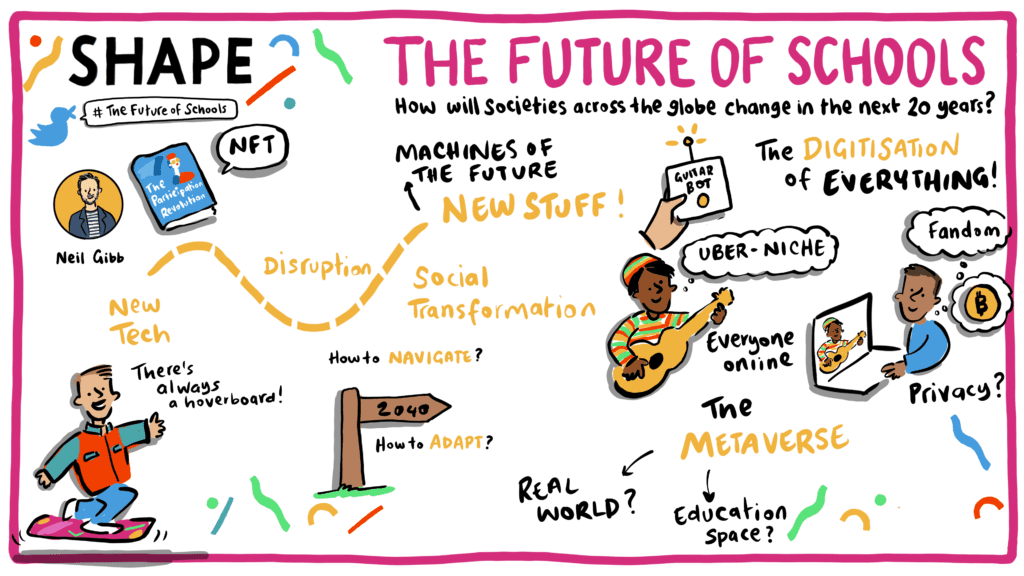 SHAPE
THE FUTURE OF SCHOOLS
How will Societies across the globe change in the next 20 years?
# The Future of Schools
NFT
The
Participation
Revolution
Neil Gibb
MACHINES OF
THE FUTURE
NEW STUFF!
Disruption
Social
Transformation
New
Tech
There's
always
a hoverboard!
How to NAVIGATE?
2040
How to ADAPT?
GUITAR
BOT
The DIGITISATION
of EVERYTHING!
UBER-NICHE
Fandom
₿
Everyone
online
Privacy?
The
METAVERSE
REAL
WORLD?
Education
Space?